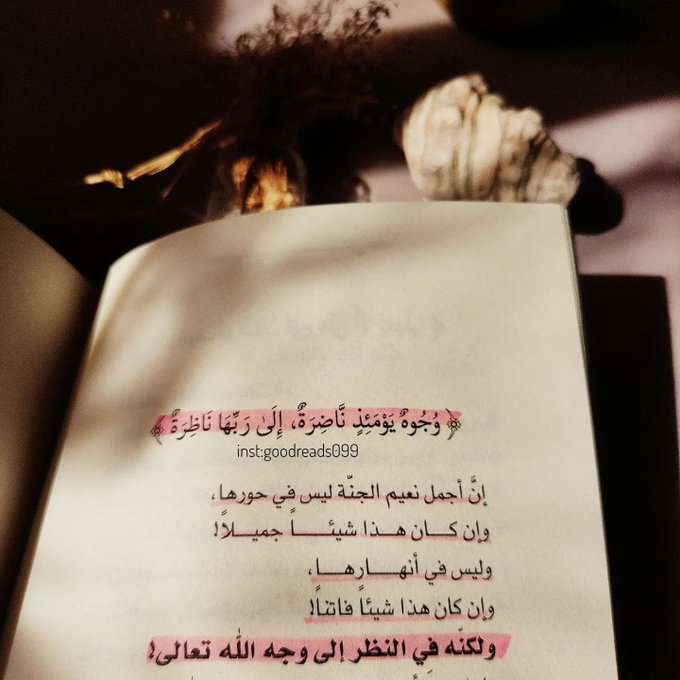 ﴿ وُجُوهٌ يَوْمَئِذٍ نَّاضِرَةٌ، إِلَىٰ رَبِّهَا نَاظِرَةٌ ﴾
inst:goodreads099
إنَّ أجمل نعيم الجنّة ليس في حورها،
وإن كـــان هـــذا شيئـــاً جميـــلاً!
وليس في أنهـــارهـــا،
وإن كان هذا شيئاً فاتناً!
ولكنّه في النظر إلى وجه الله تعالى!